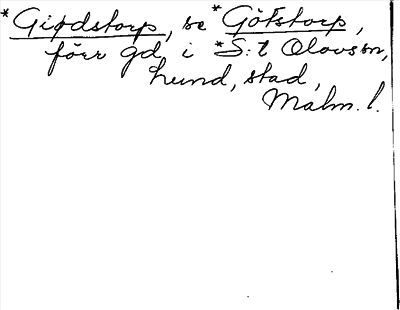 *Giødstorp, se *Götstorp,
förr gd i *S:t Olovssn,
Lund, stad,
Malm. l.